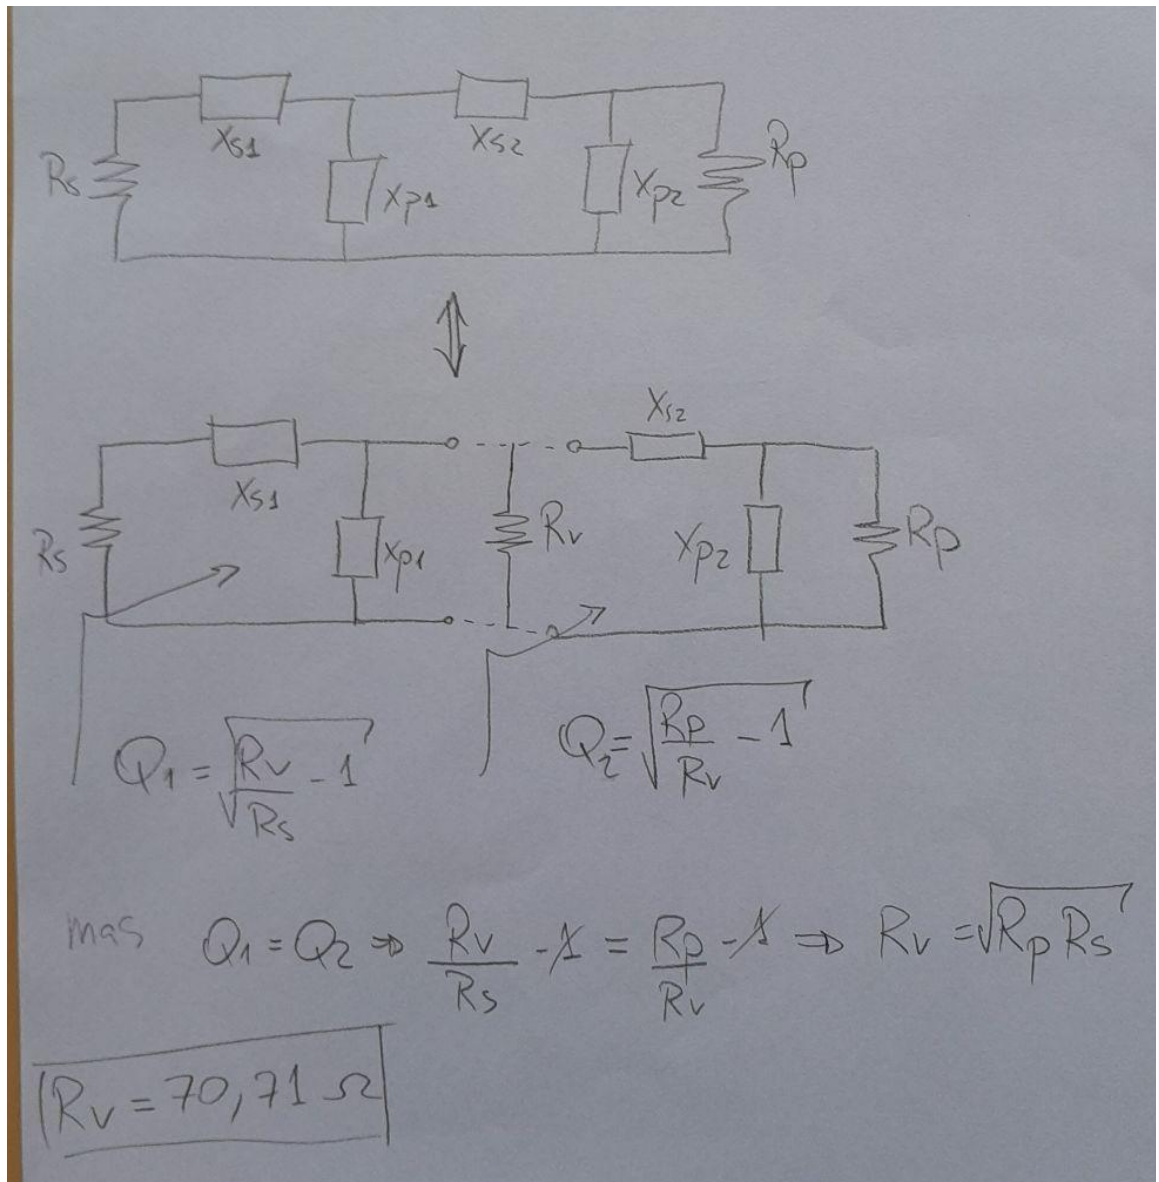 Rs Xs1 Xp1 Xs2 Xp2 Rp
⇕
Rs Xs1 Xp1 Rv Xs2 Xp2 Rp
Q1 = √(Rv/Rs - 1)
Q2 = √(Rp/Rv - 1)
mas Q1 = Q2 ⇒ Rv/Rs - 1 = Rp/Rv - 1 ⇒ Rv = √(Rp Rs)
Rv = 70,71 Ω